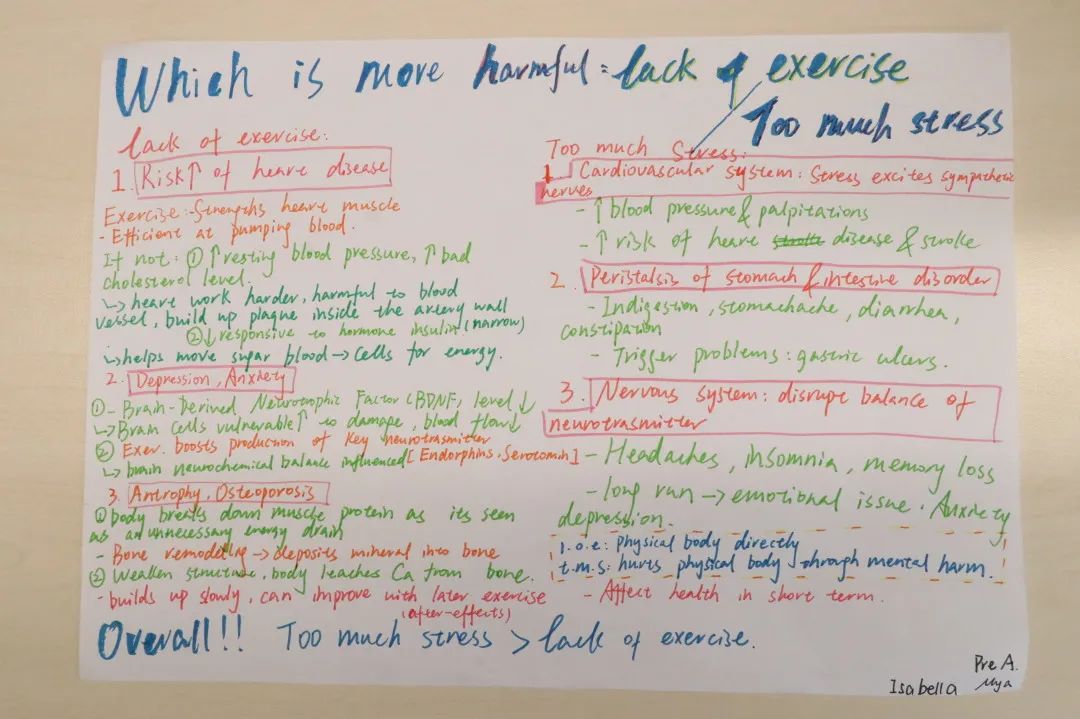 Which is more harmful: lack of exercise
Too much stress
lack of exercise:
1. Risk↑ of heart disease
Exercise:-Strengths heart muscle
- Efficient at pumping blood.
If not: ① ↑resting blood pressure, ↑ bad
cholesterol level.
↳ heart work harder, harmful to blood
vessel, build up plaque inside the artery wall
(narrow)
②↓responsive to hormone insulin
↳helps move sugar blood → cells for energy.
2. Depression, Anxiety
①- Brain-Derived Neurotrophic Factor (BDNF) level↓
↳Brain cells vulnerable↑ to damage, blood flow↓
② Exer. boosts production of key neurotrasmitter
↳ brain neurochemical balance influenced [Endorphins, Serotomin]
3. Antrophy, Osteoporosis
① body breaks down muscle protein as its seen
as an unnecessary energy drain
- Bone remodeling → deposits mineral into bone
② Weaken structure, body leaches Ca from bone.
- builds up slowly, can improve with later exercise
(after-effects)
Too much Stress:
1. Cardiovascular system: Stress excites sympathetic
nerves
- ↑ blood pressure & palpitations
- ↑ risk of heart stroke disease & stroke
2. Peristalsis of stomach & intestine disorder
- Indigestion, stomachache, diarrhea,
constipation
- Trigger problems: gastric ulcers.
3. Nervous system: disrupt balance of
neurotrasmitter
- Headaches, insomnia, memory loss
- long run → emotional issue. Anxiety
depression.
l.o.e: Physical body directly
t.m.s: hurts physical body through mental harm.
- Affect health in short term.
Overall!! Too much stress > lack of exercise.
Pre A.
Isabella Mya